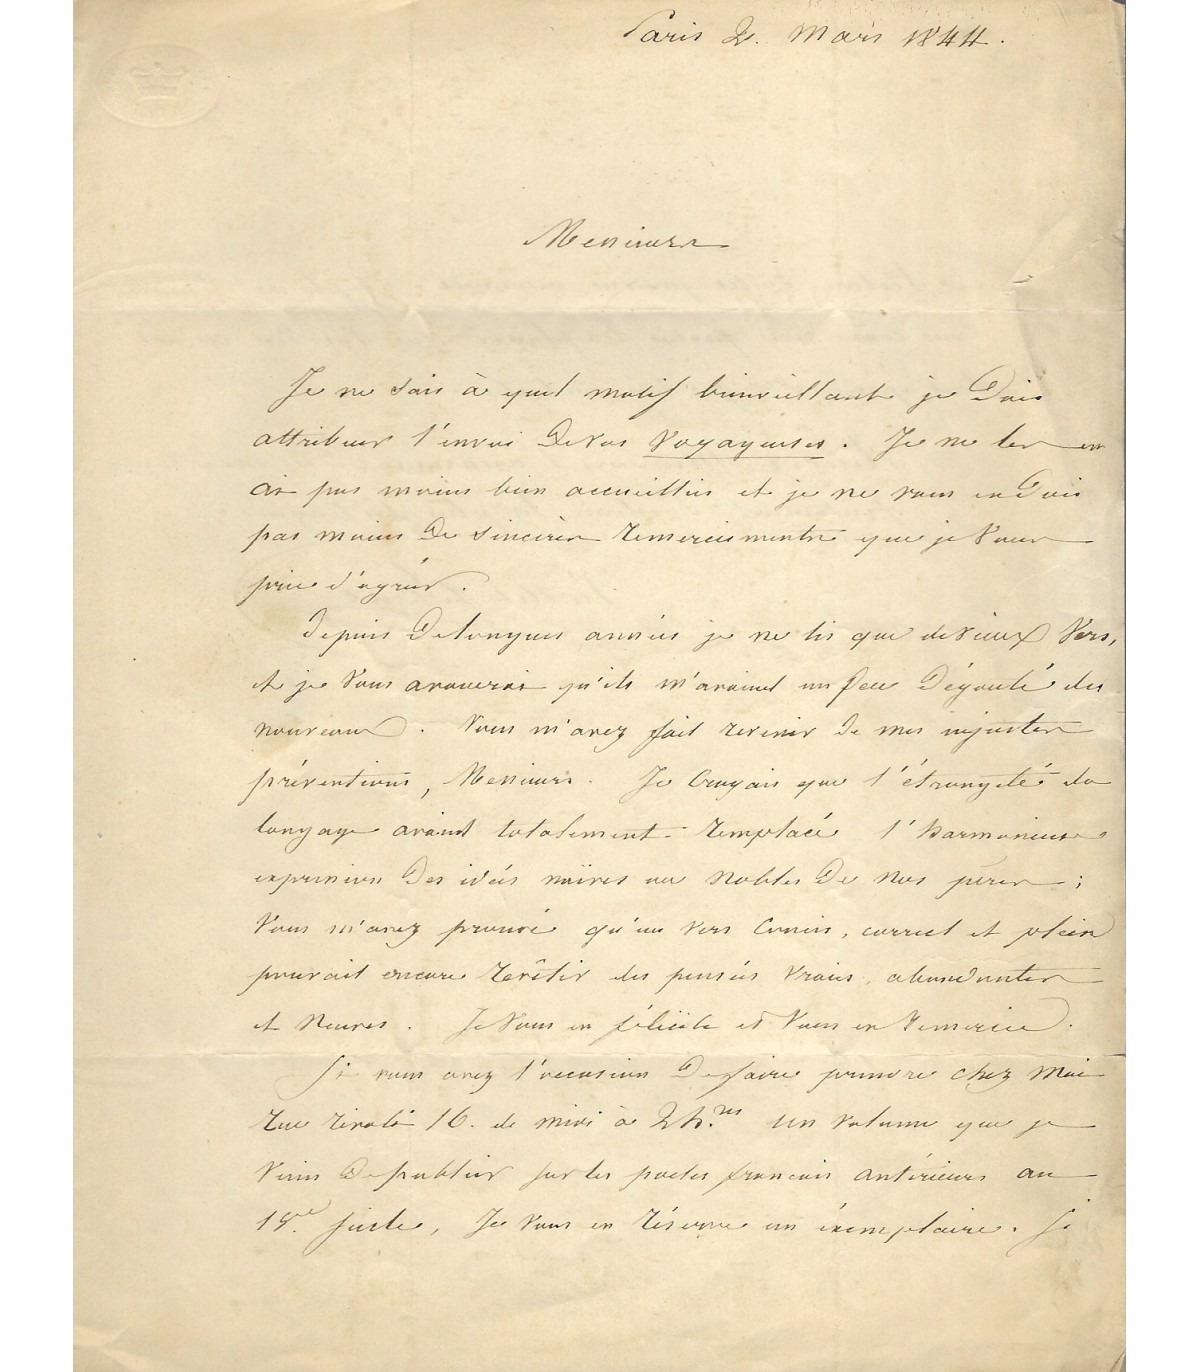 Paris 2. Mars 1844.
Messieurs
Je ne sais à quel motif bienveillant je Dois
attribuer l'envoi De vos Voyageuses. Je ne les en
ai pas moins bien accueillies et je ne vous en Dois
pas moins De sincères remerciments que je Vous
prie d'agréer.
Depuis De longues années je ne lis que de vieux Vers,
et je Vous avouerai qu'ils m'avaient un peu Dégouté des
nouveaux. Vous m'avez fait revenir De mes injustes
préventions, Messieurs. Je Croyais que l'étrangeté du
langage avait totalement remplacé l'harmonieuse
expression Des idées naïves ou nobles De nos pères;
Vous m'avez prouvé qu'un vers Concis, correct et plein
pouvait encore revêtir des pensées vraies, abondantes
et neuves. Je Vous en félicite et Vous en remercie.
Si vous avez l'occasion De faire prendre chez moi
rue rivoli 16. de midi à 2 h.res un volume que je
Viens De publier sur les poetes francais antérieurs au
19e. siecle, Je Vous en réserve un exemplaire. Si